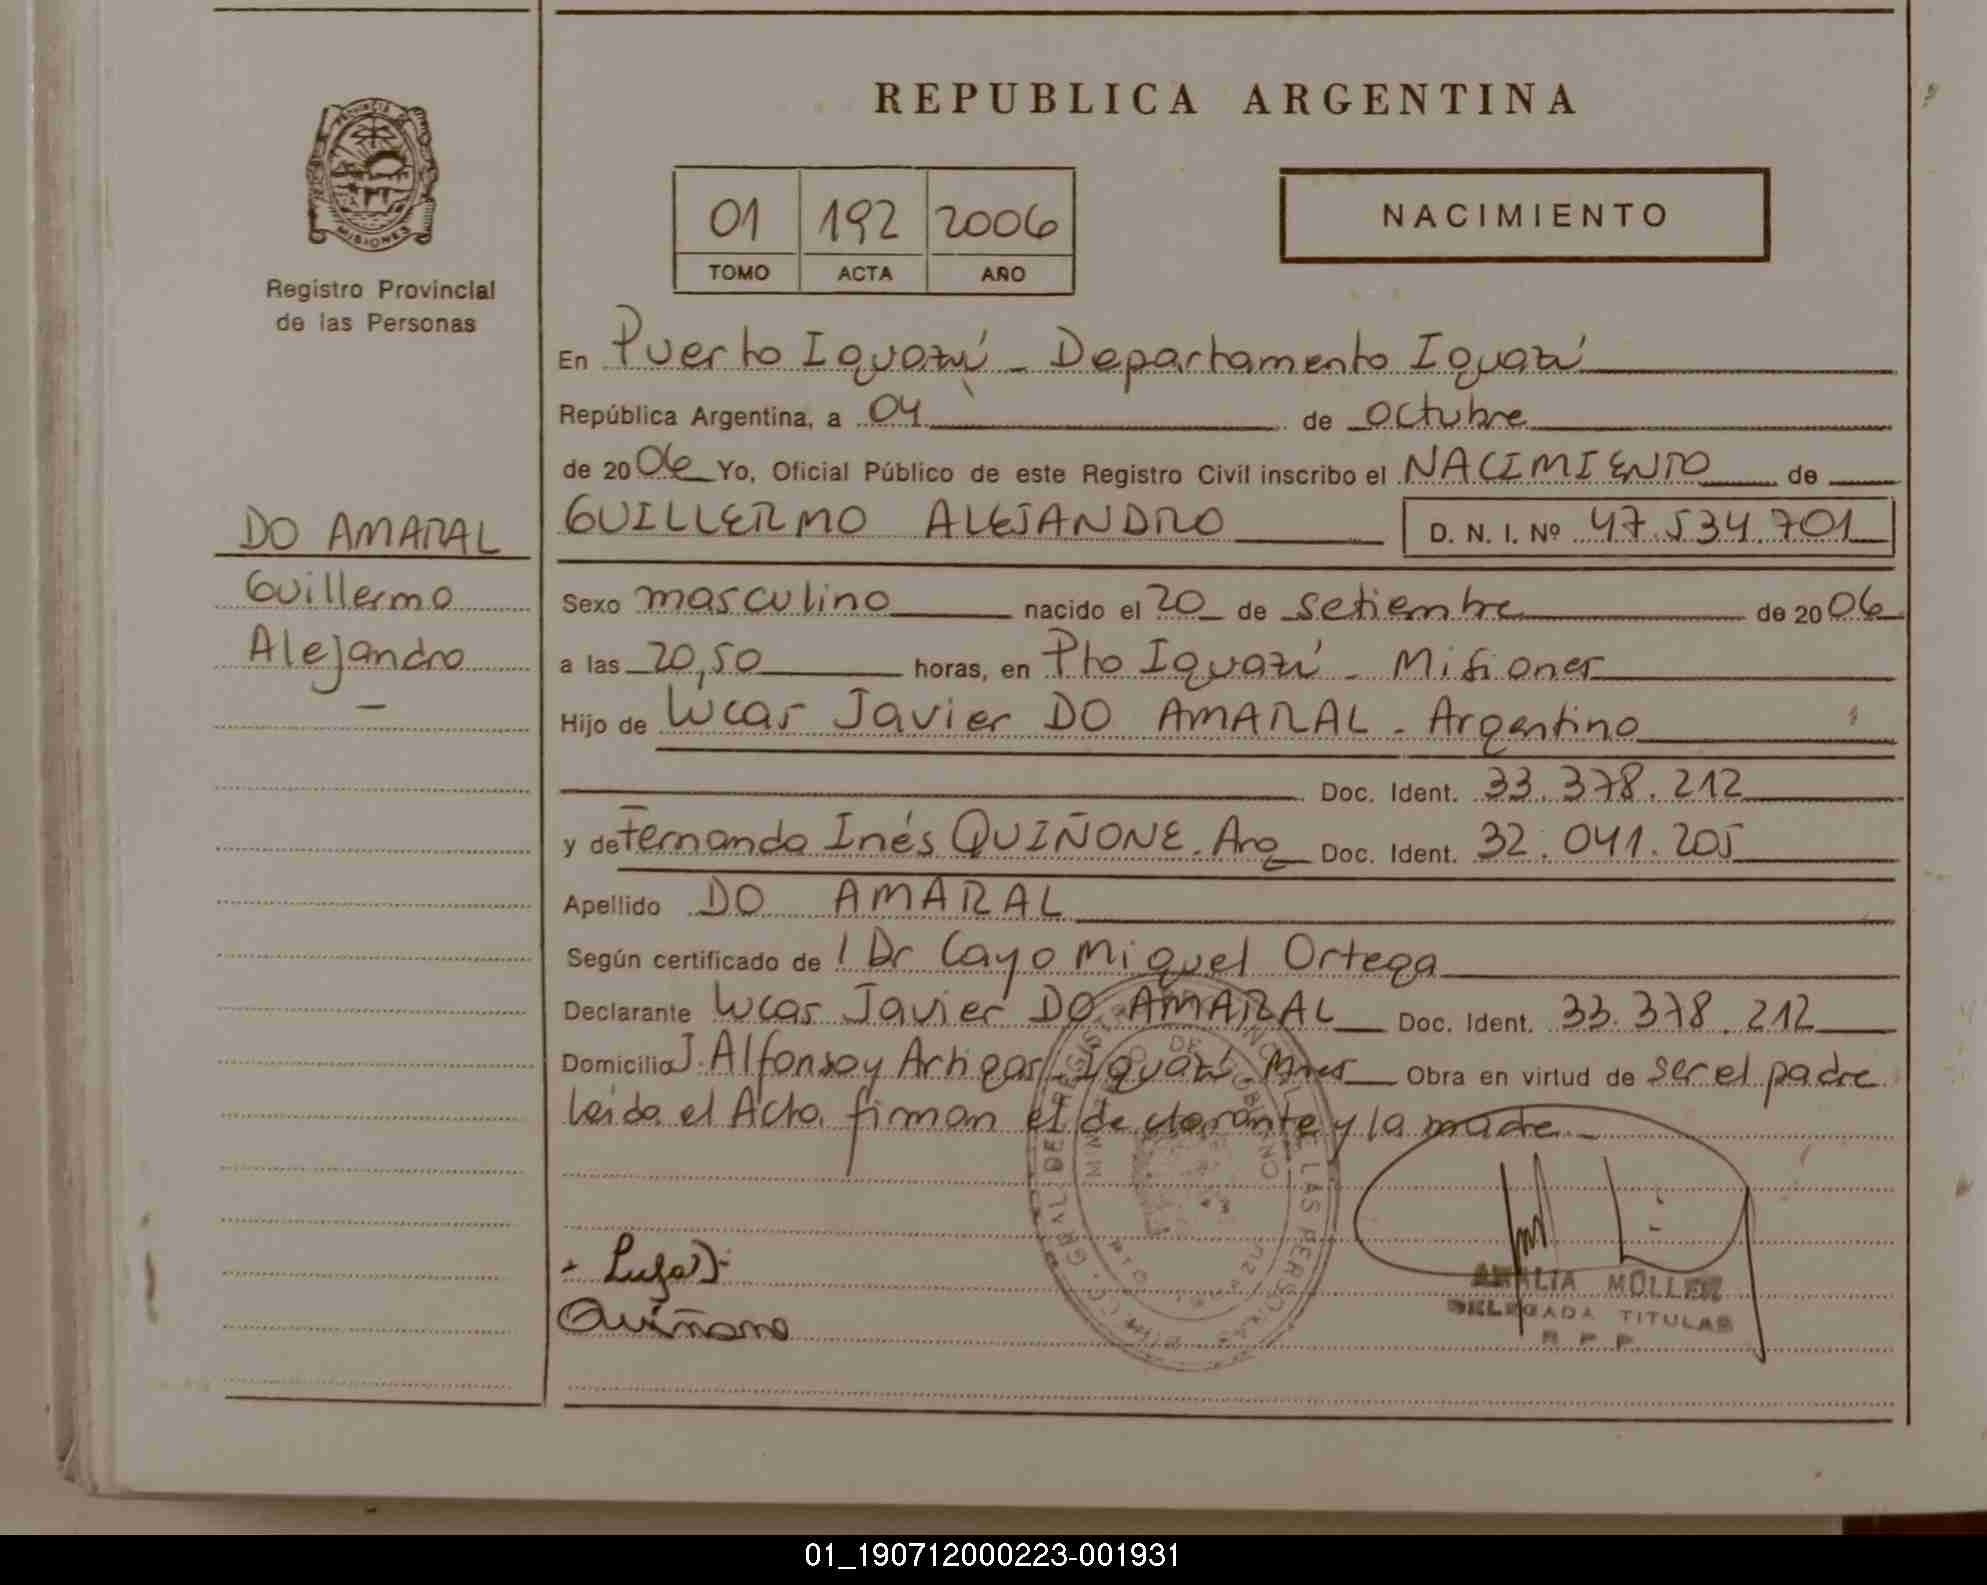 REPUBLICA ARGENTINA
PROVINCIA DE
MISIONES
Registro Provincial
de las Personas
01 192 2006
TOMO ACTA AÑO
NACIMIENTO
En Puerto Iguazú - Departamento Iguazú
República Argentina, a 04 de octubre
de 2006 Yo, Oficial Público de este Registro Civil inscribo el NACIMIENTO de
DO AMARAL
Guillermo
Alejandro
GUILLERMO ALEJANDRO D. N. I. Nº 47.534.701
Sexo masculino nacido el 20 de setiembre de 2006
a las 20,50 horas, en Pto Iguazú - Misiones
Hijo de Lucas Javier DO AMARAL - Argentino
Doc. Ident. 33.378.212
y de Fernanda Inés QUIÑONE. Arg Doc. Ident. 32.041.205
Apellido DO AMARAL
Según certificado de l Dr Cayo Miguel Ortega
Declarante Lucas Javier DO AMARAL Doc. Ident. 33.378.212
Domicilio J. Alfonso y Artigas - Iguazú Mnes Obra en virtud de ser el padre
leída el Acta firman el declarante y la madre.-
Quiñone
AMALIA MÜLLER
DELEGADA TITULAR
R P P
01_190712000223-001931